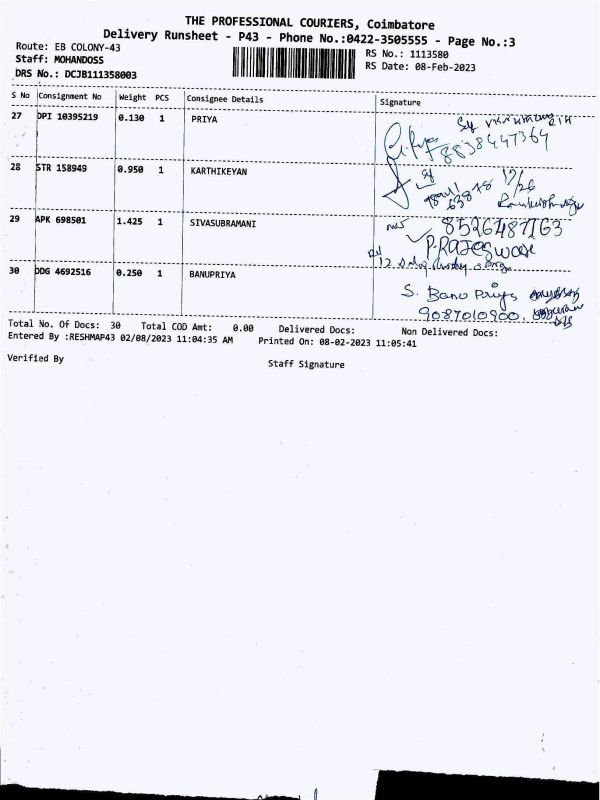 THE PROFESSIONAL COURIERS, Coimbatore
Delivery Runsheet - P43 - Phone No.:0422-3505555 - Page No.:3
Route: EB COLONY-43
Staff: MOHANDOSS
DRS No.: DCJB111358003
RS No.: 1113580
RS Date: 08-Feb-2023
S No Consignment No Weight PCS Consignee Details Signature
27 DPI 10395219 0.130 1 PRIYA
8838447364
28 STR 158949 0.950 1 KARTHIKEYAN
63878 17/26
29 APK 698501 1.425 1 SIVASUBRAMANI
8526487163
P.RAJESWARI
30 DDG 4692516 0.250 1 BANUPRIYA
S. Banu Priya
9087010900.
Total No. Of Docs: 30 Total COD Amt: 0.00 Delivered Docs: Non Delivered Docs:
Entered By :RESHMAP43 02/08/2023 11:04:35 AM Printed On: 08-02-2023 11:05:41
Verified By Staff Signature